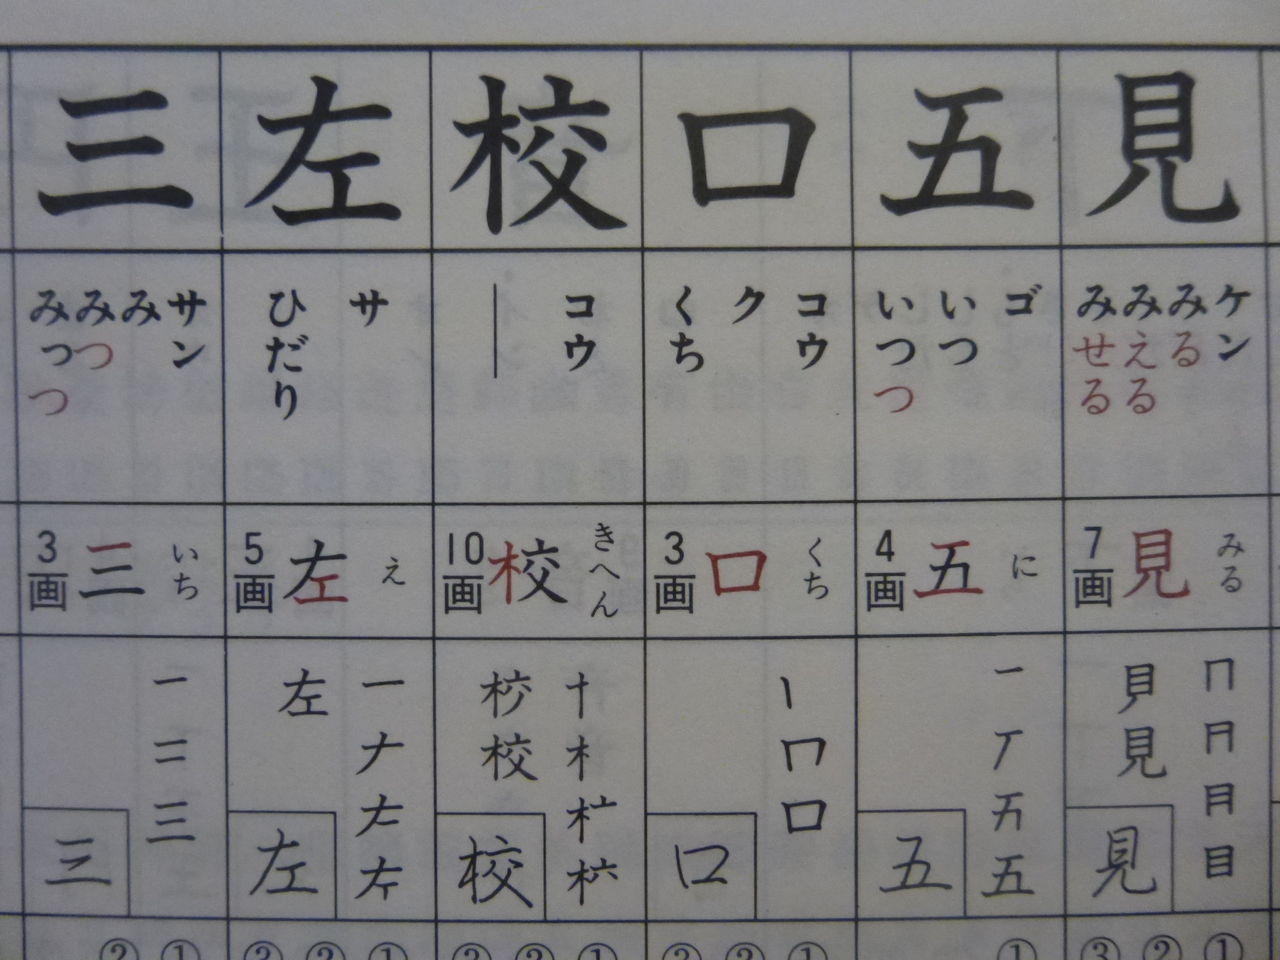 見
ケン
みる
みえる
みせる
7画
見
みる
見
見
五
ゴ
いつ
いつつ
4画
五
に
一
五
五
口
コウ
ク
くち
3画
口
くち
口
口
校
コウ
―
10画
校
きへん
十
木
校
校
左
サ
ひだり
5画
左
え
一
ナ
左
左
三
サン
み
みつ
みっつ
3画
三
いち
一
二
三
三
① ② ③
①
① ② ③
① ② ③
① ② ③
① ②